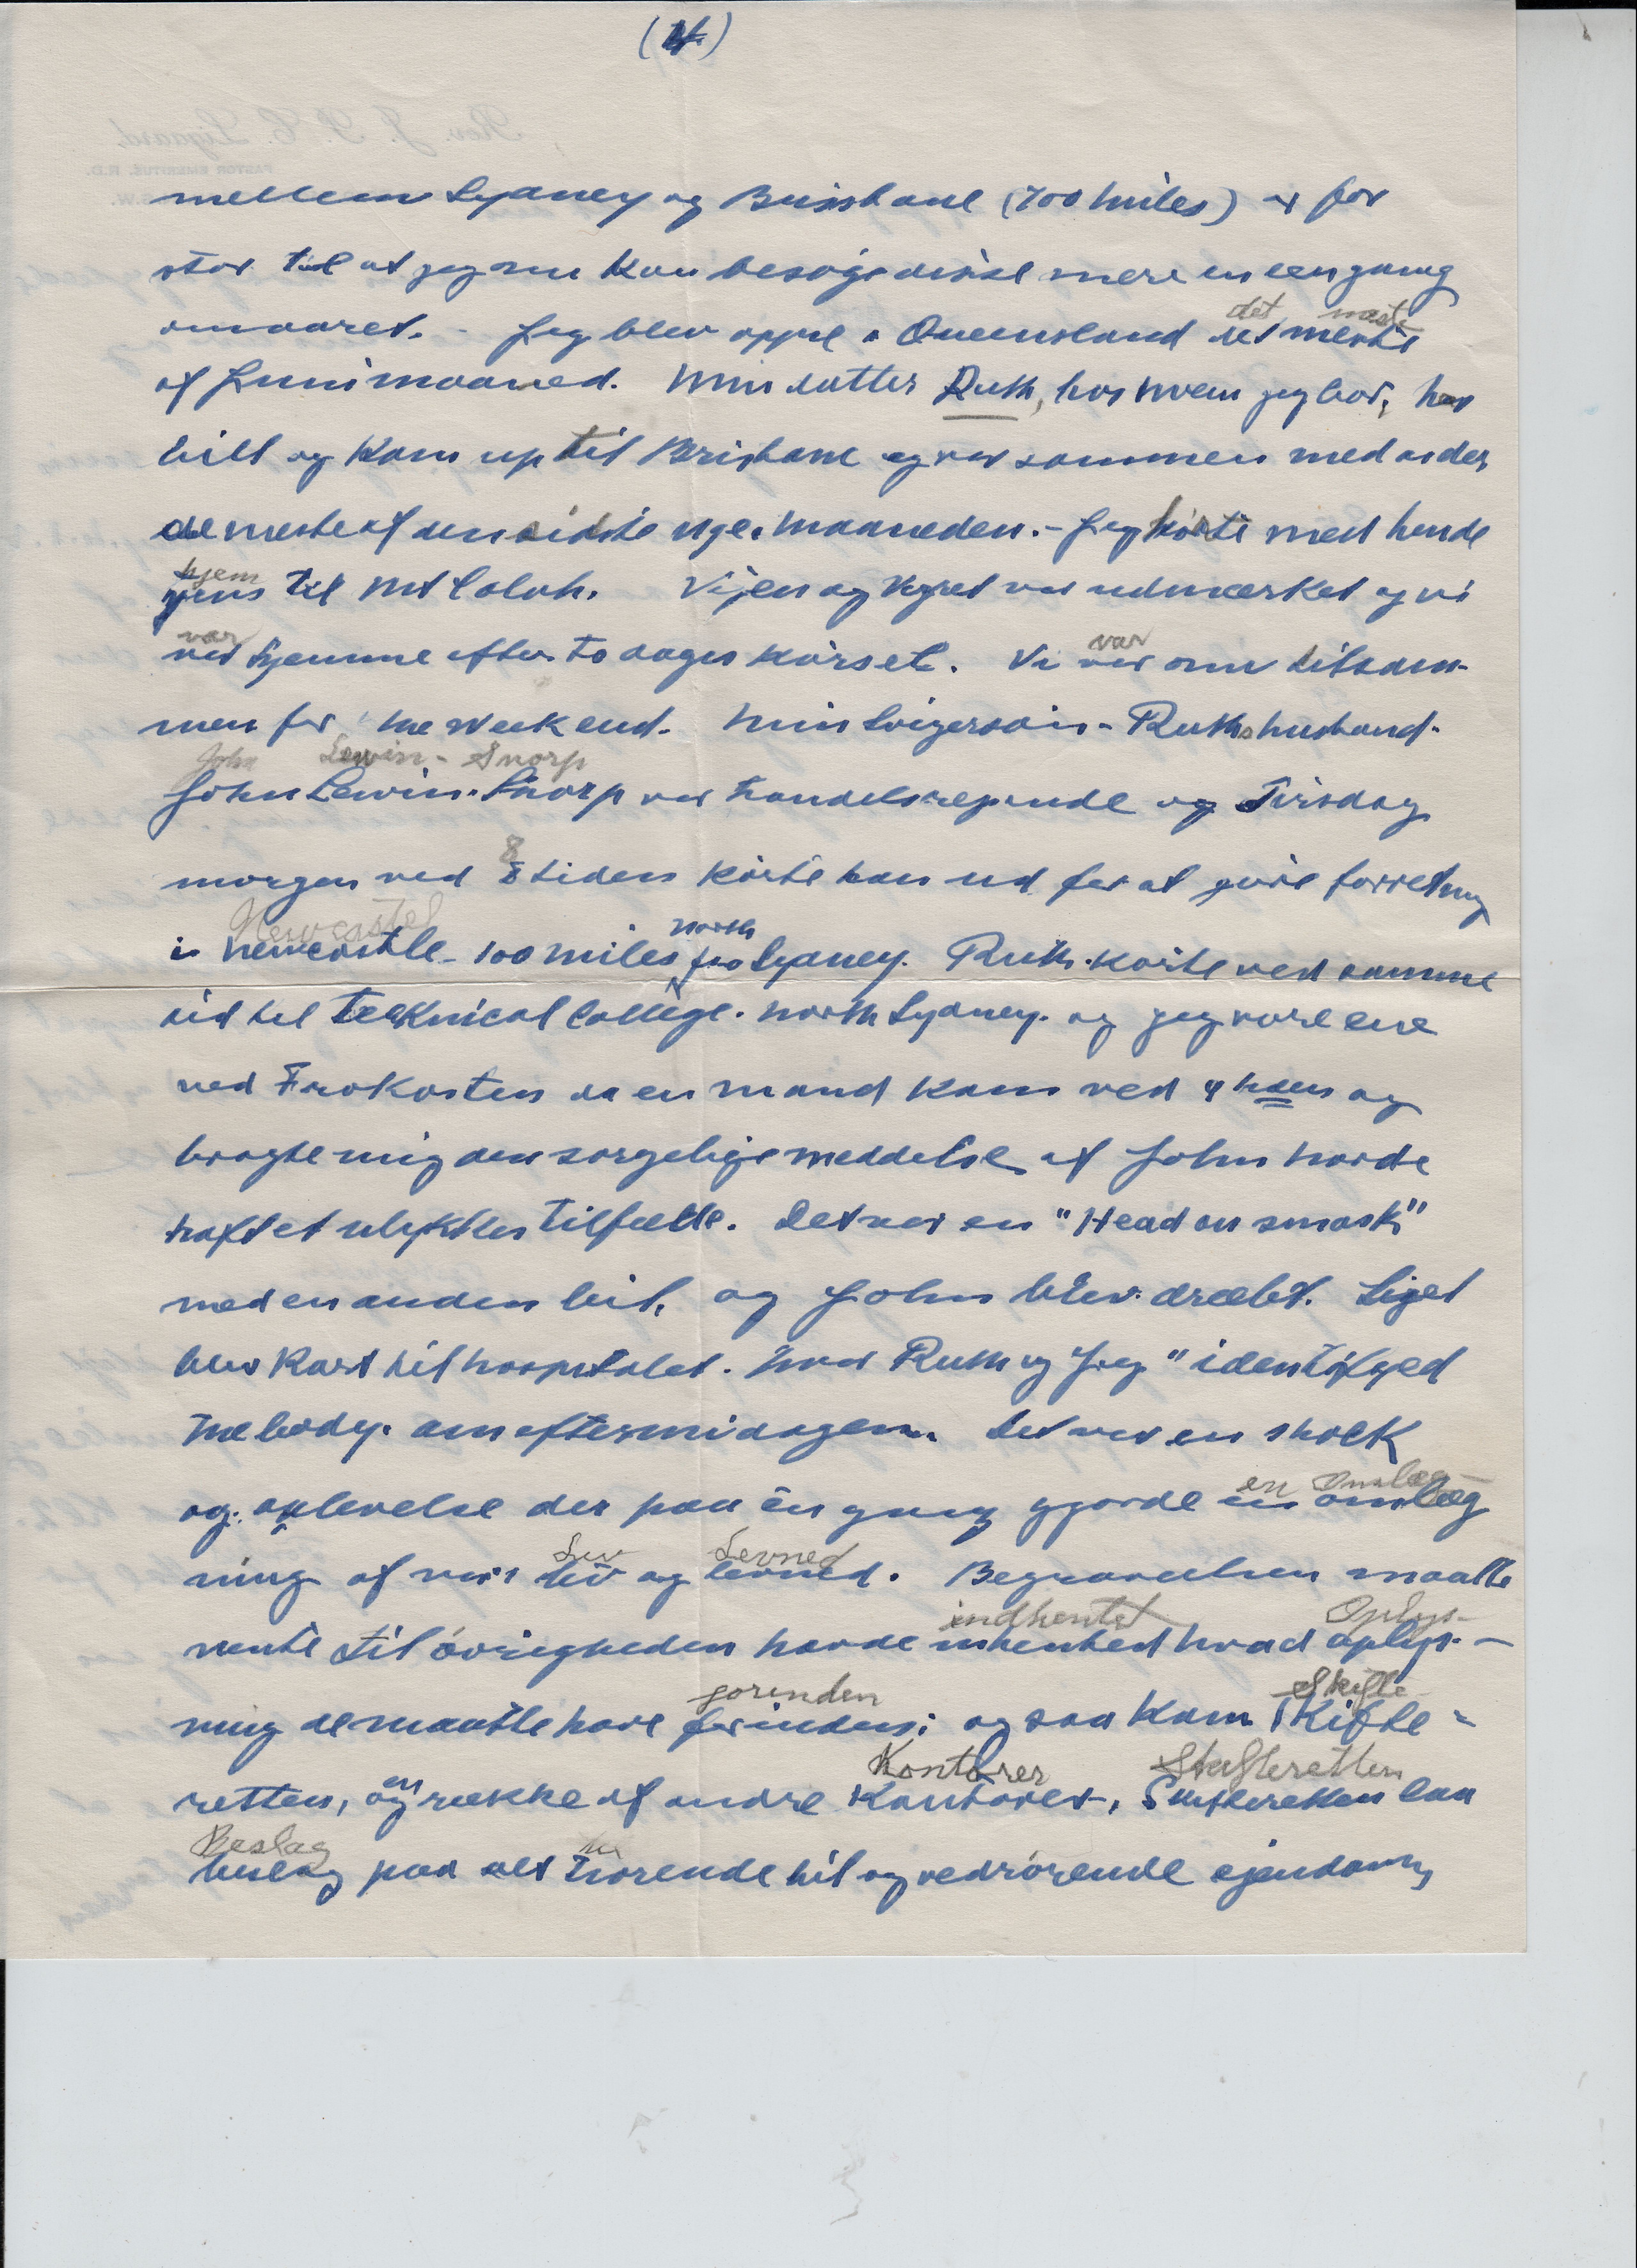 (4)
mellem Sydney og Brisbane (700 miles) er for
stor til at jeg nu kan besøge disse mere en een gang
om aaret. - Jeg blev oppe i Queensland det meste
det meste
af Juni maaned. Min datter Ruth, hos hvem jeg bor, har
bill og kom up til Brisbane og var sammen med os der
de meste af den sidste uge i maaneden. - Jeg kørte med hende
hjem
hjem til Mt Colah. Vejen og Vejret var udmærket og vi
var var
var hjemme efter to dages kørsel. Vi var nu tilsam-
men for the week end. Min Svigersøn - Ruths husband -
John Lewin - Snorp
John Lewin-Snorp var handelsrejsende og Tirsdag
8
morgen ved 8 tiden kørte han ud for at gøre forretning
Newcastel north
i Newcastle - 100 miles fra Sydney. Ruth kørte ved samme
tid til Technical College. North Sydney. og jeg var ene
ved Frokosten da en mand kom ved 4 og
bragte mig den sorgelige meddelse at John havde
haft et ulykkes tilfælde. Det var en "Head on smash"
med en anden bil, og John blev dræbt. Liget
blev kørt til hospitalet. hvor Ruth og Jeg "identifyed
the body. om eftermidagen. Det var en shock
en Omlæg-
og oplevelse der paa én gang gjorde en omlæg
Liv Levned
ning af vort liv og levned. Begravelsen maatte
indhentet Oplys-
vente til øvrigheden havde inhentet hvad oplys-
forinden Skifte
ning de maatte have forinden; og saa kom Skifte-
Kontorer Skifteretten
en
retten, og række af andre Kontorer, Skifteretten laa
Beslag
beslag paa alt henhørende til og vedrørende ejendom,